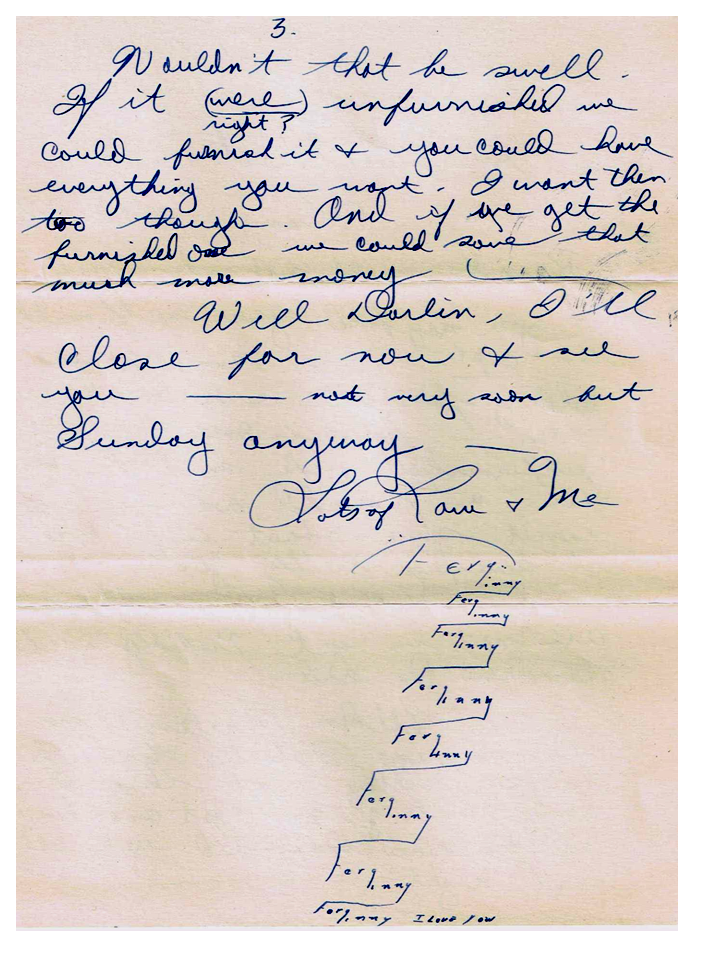 3.
Wouldn't that be swell.
If it (were) unfurnished we
right?
could furnish it & you could have
everything you want. I want them
too though. And if we get the
furnished one we could save that
much more money
Well Darlin, I'll
close for now & see
you — not very soon but
Sunday anyway —
Lots of Love & Me
Ferg
inny
Ferg
inny
Ferg
inny
Ferg
inny
Ferg
inny
Ferg
inny
Ferg
inny
Ferg
inny I Love You